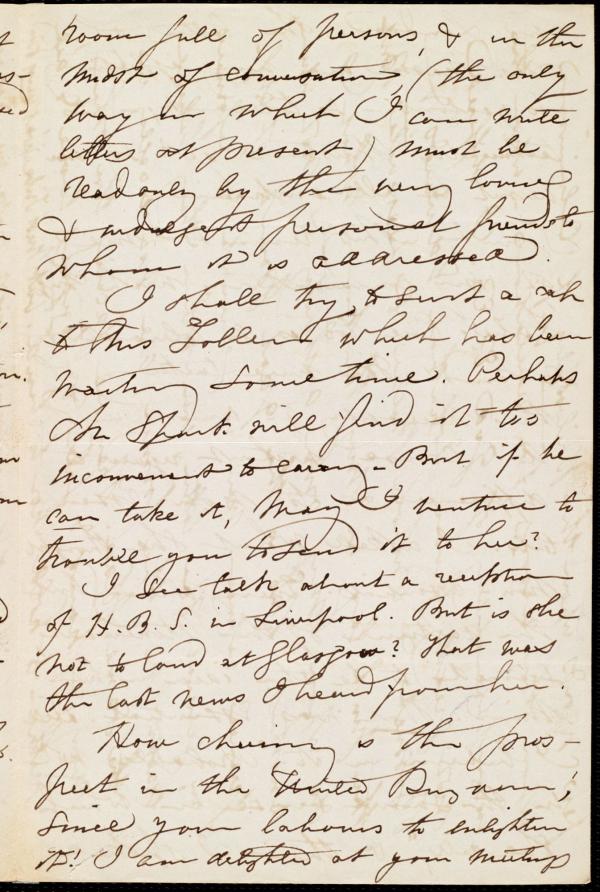 room full of persons, & in the
midst of conversation, (the only
way in which I can write
letters at present) must be
read only by the very loving
& indulgent personal friend to
whom it is addressed.
I shall try to send a
to Mrs Follen which has been
waiting some time. Perhaps
Mr Spark will find it too
inconvenient to carry. But if he
can take it, may I venture to
trouble you to send it to her?
I see talk about a reception
of H. B. S. in Liverpool. But is she
not to land at Glasgow? That was
the last news I heard from her.
How cheering is the pros-
pect in the United
since your labours to enlighten
it! I am delighted at your meetings